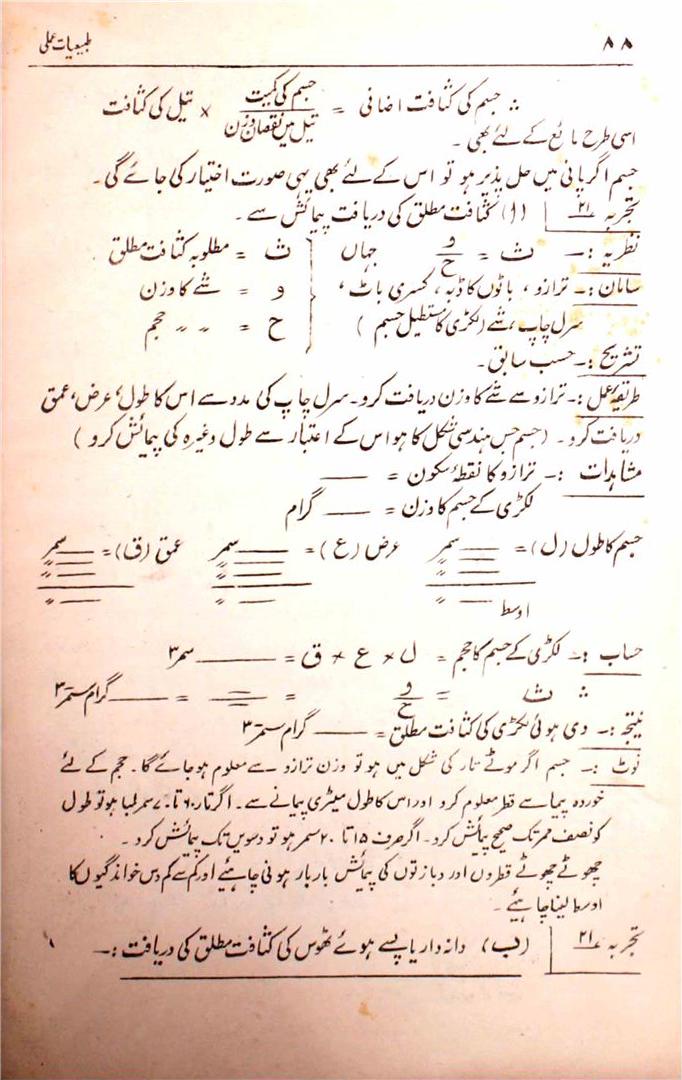 ۸۸ طبیعیات عملی
∴ جسم کی کثافت اضافی = جسم کی کمیت / تیل میں نقصان وزن × تیل کی کثافت
اسی طرح مائع کے لئے بھی ۔
جسم اگر پانی میں حل پذیر ہو تو اس کے لئے بھی یہی صورت اختیار کی جائے گی۔
تجربہ ۲۱ (ا) کثافت مطلق کی دریافت پیمائش سے ۔
نظریہ :۔ ث = و / ح جہاں ث = مطلوبہ کثافت مطلق
سامان :۔ ترازو ، باٹوں کا ڈبہ ، کسری باٹ ، و = شے کا وزن
سرل چاپ، شے (لکڑی کا مستطیل جسم) ح = 〃 〃 حجم
تشریح :۔ حسب سابق۔
طریقہ عمل :۔ ترازو سے شے کا وزن دریافت کرو۔ سرل چاپ کی مدد سے اس کا طول، عرض، عمق
دریافت کرو۔ (جسم جس ہندسی شکل کا ہو اس کے اعتبار سے طول وغیرہ کی پیمائش کرو)
مشاہدات :۔ ترازو کا نقطۂ سکون = ——
لکڑی کے جسم کا وزن = —— گرام
جسم کا طول (ل) = —— سمر عرض (ع) = —— سمر عمق (ق) = —— سمر
—— 〃 —— 〃 —— 〃
—— 〃 —— 〃 —— 〃
اوسط —— 〃 —— 〃 —— 〃
حساب :۔ لکڑی کے جسم کا حجم = ل × ع × ق = —— سمر۳
∴ ث = و / ح = —— = —— گرام سمر-۳
نتیجہ :۔ دی ہوئی لکڑی کی کثافت مطلق = —— گرام سمر-۳
نوٹ :۔ جسم اگر موٹے تار کی شکل میں ہو تو وزن ترازو سے معلوم ہو جائے گا۔ حجم کے لئے
خوردہ پیما سے قطر معلوم کرو اور اس کا طول میٹری پیمانے سے۔ اگر تار ۶۰ تا ۷۰ سمر لمبا ہو تو طول
کو نصف ممر تک صحیح پیمائش کرو۔ اگر صرف ۱۵ تا ۲۰ سمر ہو تو دسویں تک پیمائش کرو ۔
چھوٹے چھوٹے قطروں اور دبازتوں کی پیمائش بار بار ہونی چاہئیے اور کم سے کم دس خواندگیوں کا
اوسط لینا چاہئیے ۔
تجربہ ۲۱ (ب) دانہ دار یا پسے ہوئے ٹھوس کی کثافت مطلق کی دریافت :۔